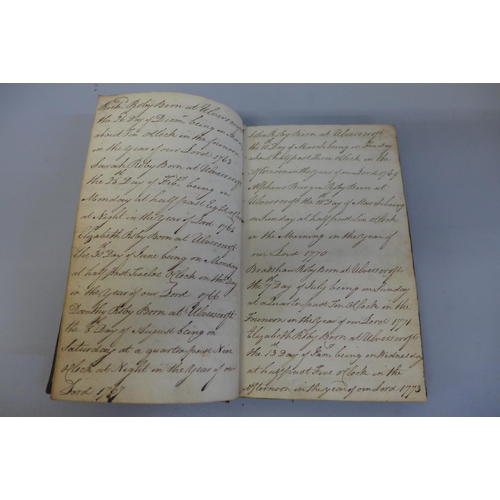 Born at Ulverscroft
the Day of Decm. being on
about Ten o'Clock in the Forenoon
in the Year of our Lord 1763
Sarah Roby Born at Ulverscroft
the Day of Feb. being on
Monday at half past Eight o'Clock
at Night in the Year of Lord 1765
Elizabeth Roby Born at Ulverscroft
the 30 Day of June being on Monday
at half past Twelve o'Clock on the Day
in the Year of our Lord 1766
Dorothy Roby Born at Ulverscroft
the Day of August being on
Saturday at a quarter past Nine
o'Clock at Night in the Year of our
Lord 1767
John Roby Born at Ulverscroft
the Day of March being on Sunday
about half past Three o'Clock in the
Afternoon in the Year of our Lord 1769
Roby Born at
Ulverscroft the Day of March being
on Sunday at half past Six o'Clock
in the Morning in the Year of
our Lord 1770
Bradshaw Roby Born at Ulverscroft
the 7th Day of July being on Sunday
at a Quarter past Ten o'Clock in the
Forenoon in the Year of our Lord 1771
Elizabeth Roby Born at Ulverscroft
the 13th Day of Jany. being on Wednesday
at half past Five o'Clock in the
Afternoon in the Year of our Lord 1773